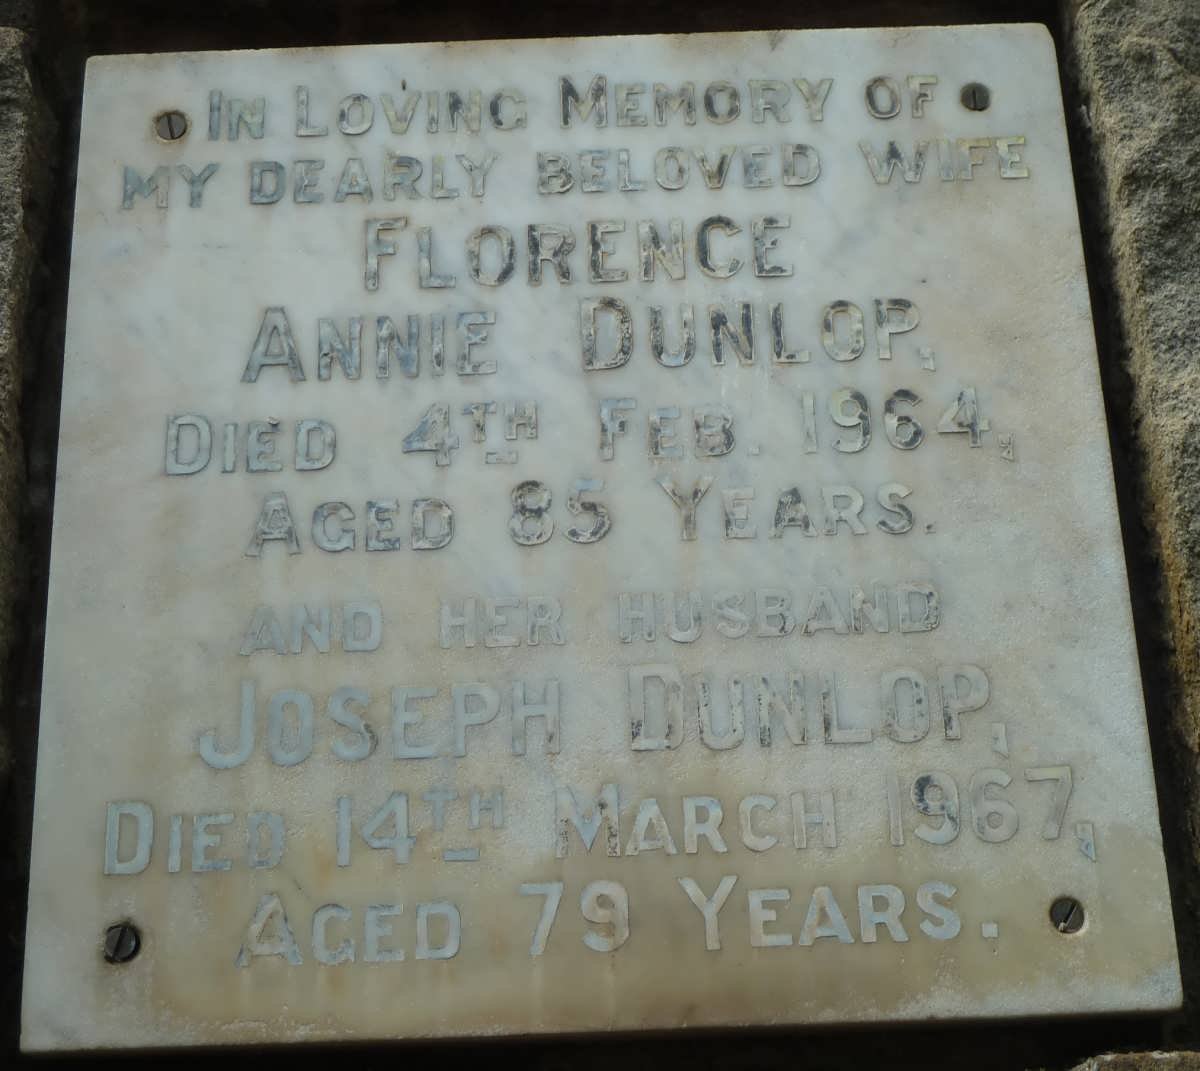 IN LOVING MEMORY OF
MY DEARLY BELOVED WIFE
FLORENCE
ANNIE DUNLOP,
DIED 4TH FEB. 1964,
AGED 85 YEARS.
AND HER HUSBAND
JOSEPH DUNLOP,
DIED 14TH MARCH 1967,
AGED 79 YEARS.